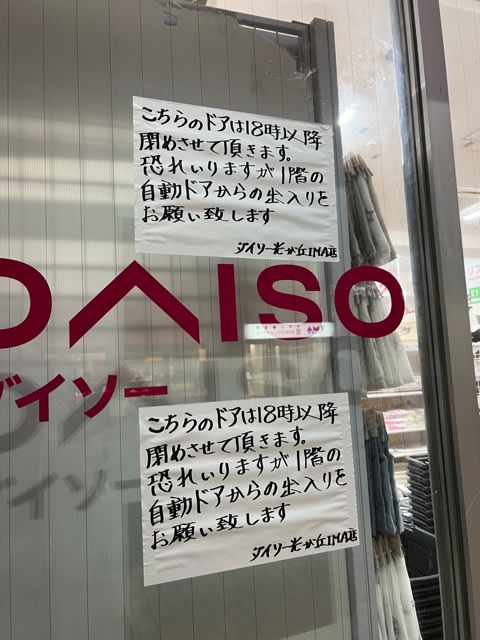 こちらのドアは18時以降
閉めさせて頂きます。
恐れいりますが1階の
自動ドアからの出入りを
お願い致します
ダイソー光が丘IMA店
DAISO
ダイソー
こちらのドアは18時以降
閉めさせて頂きます。
恐れいりますが1階の
自動ドアからの出入りを
お願い致します
ダイソー光が丘IMA店